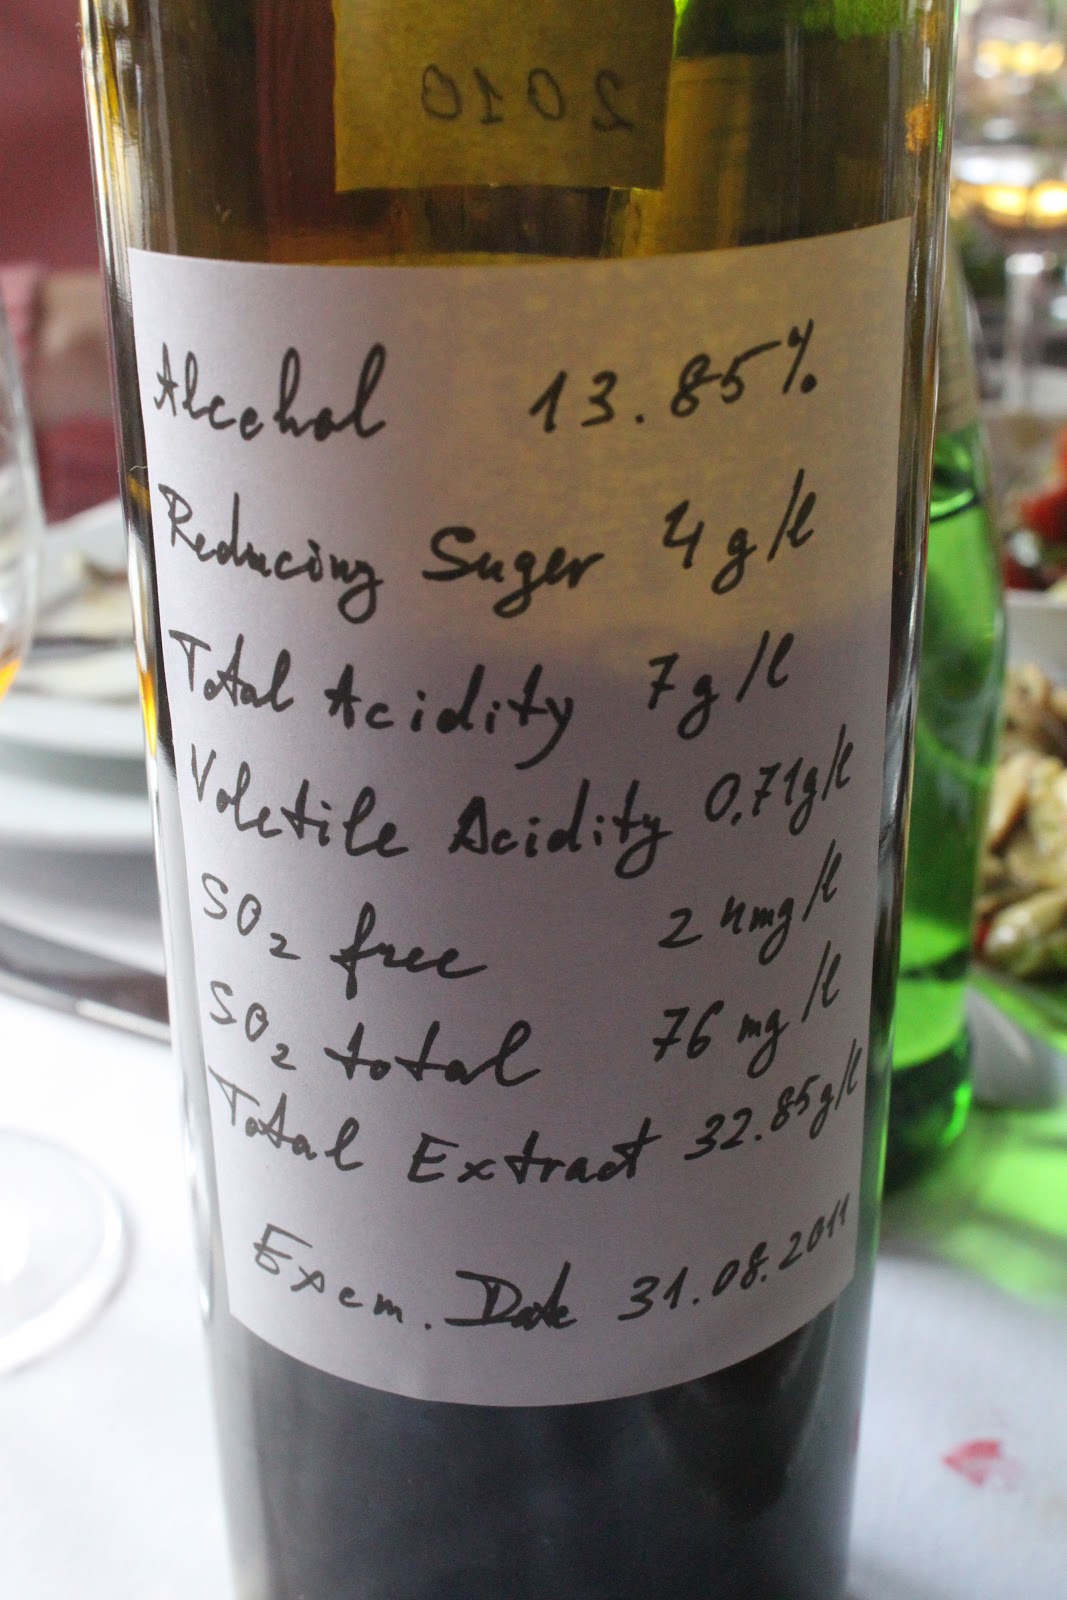 2010
Alcohol 13.85%
Reducing Suger 4g/l
Total Acidity 7g/l
Voletile Acidity 0,71g/l
SO2 free 24mg/l
SO2 total 76mg/l
Total Extract 32.85g/l
Exem. Date 31.08.2011